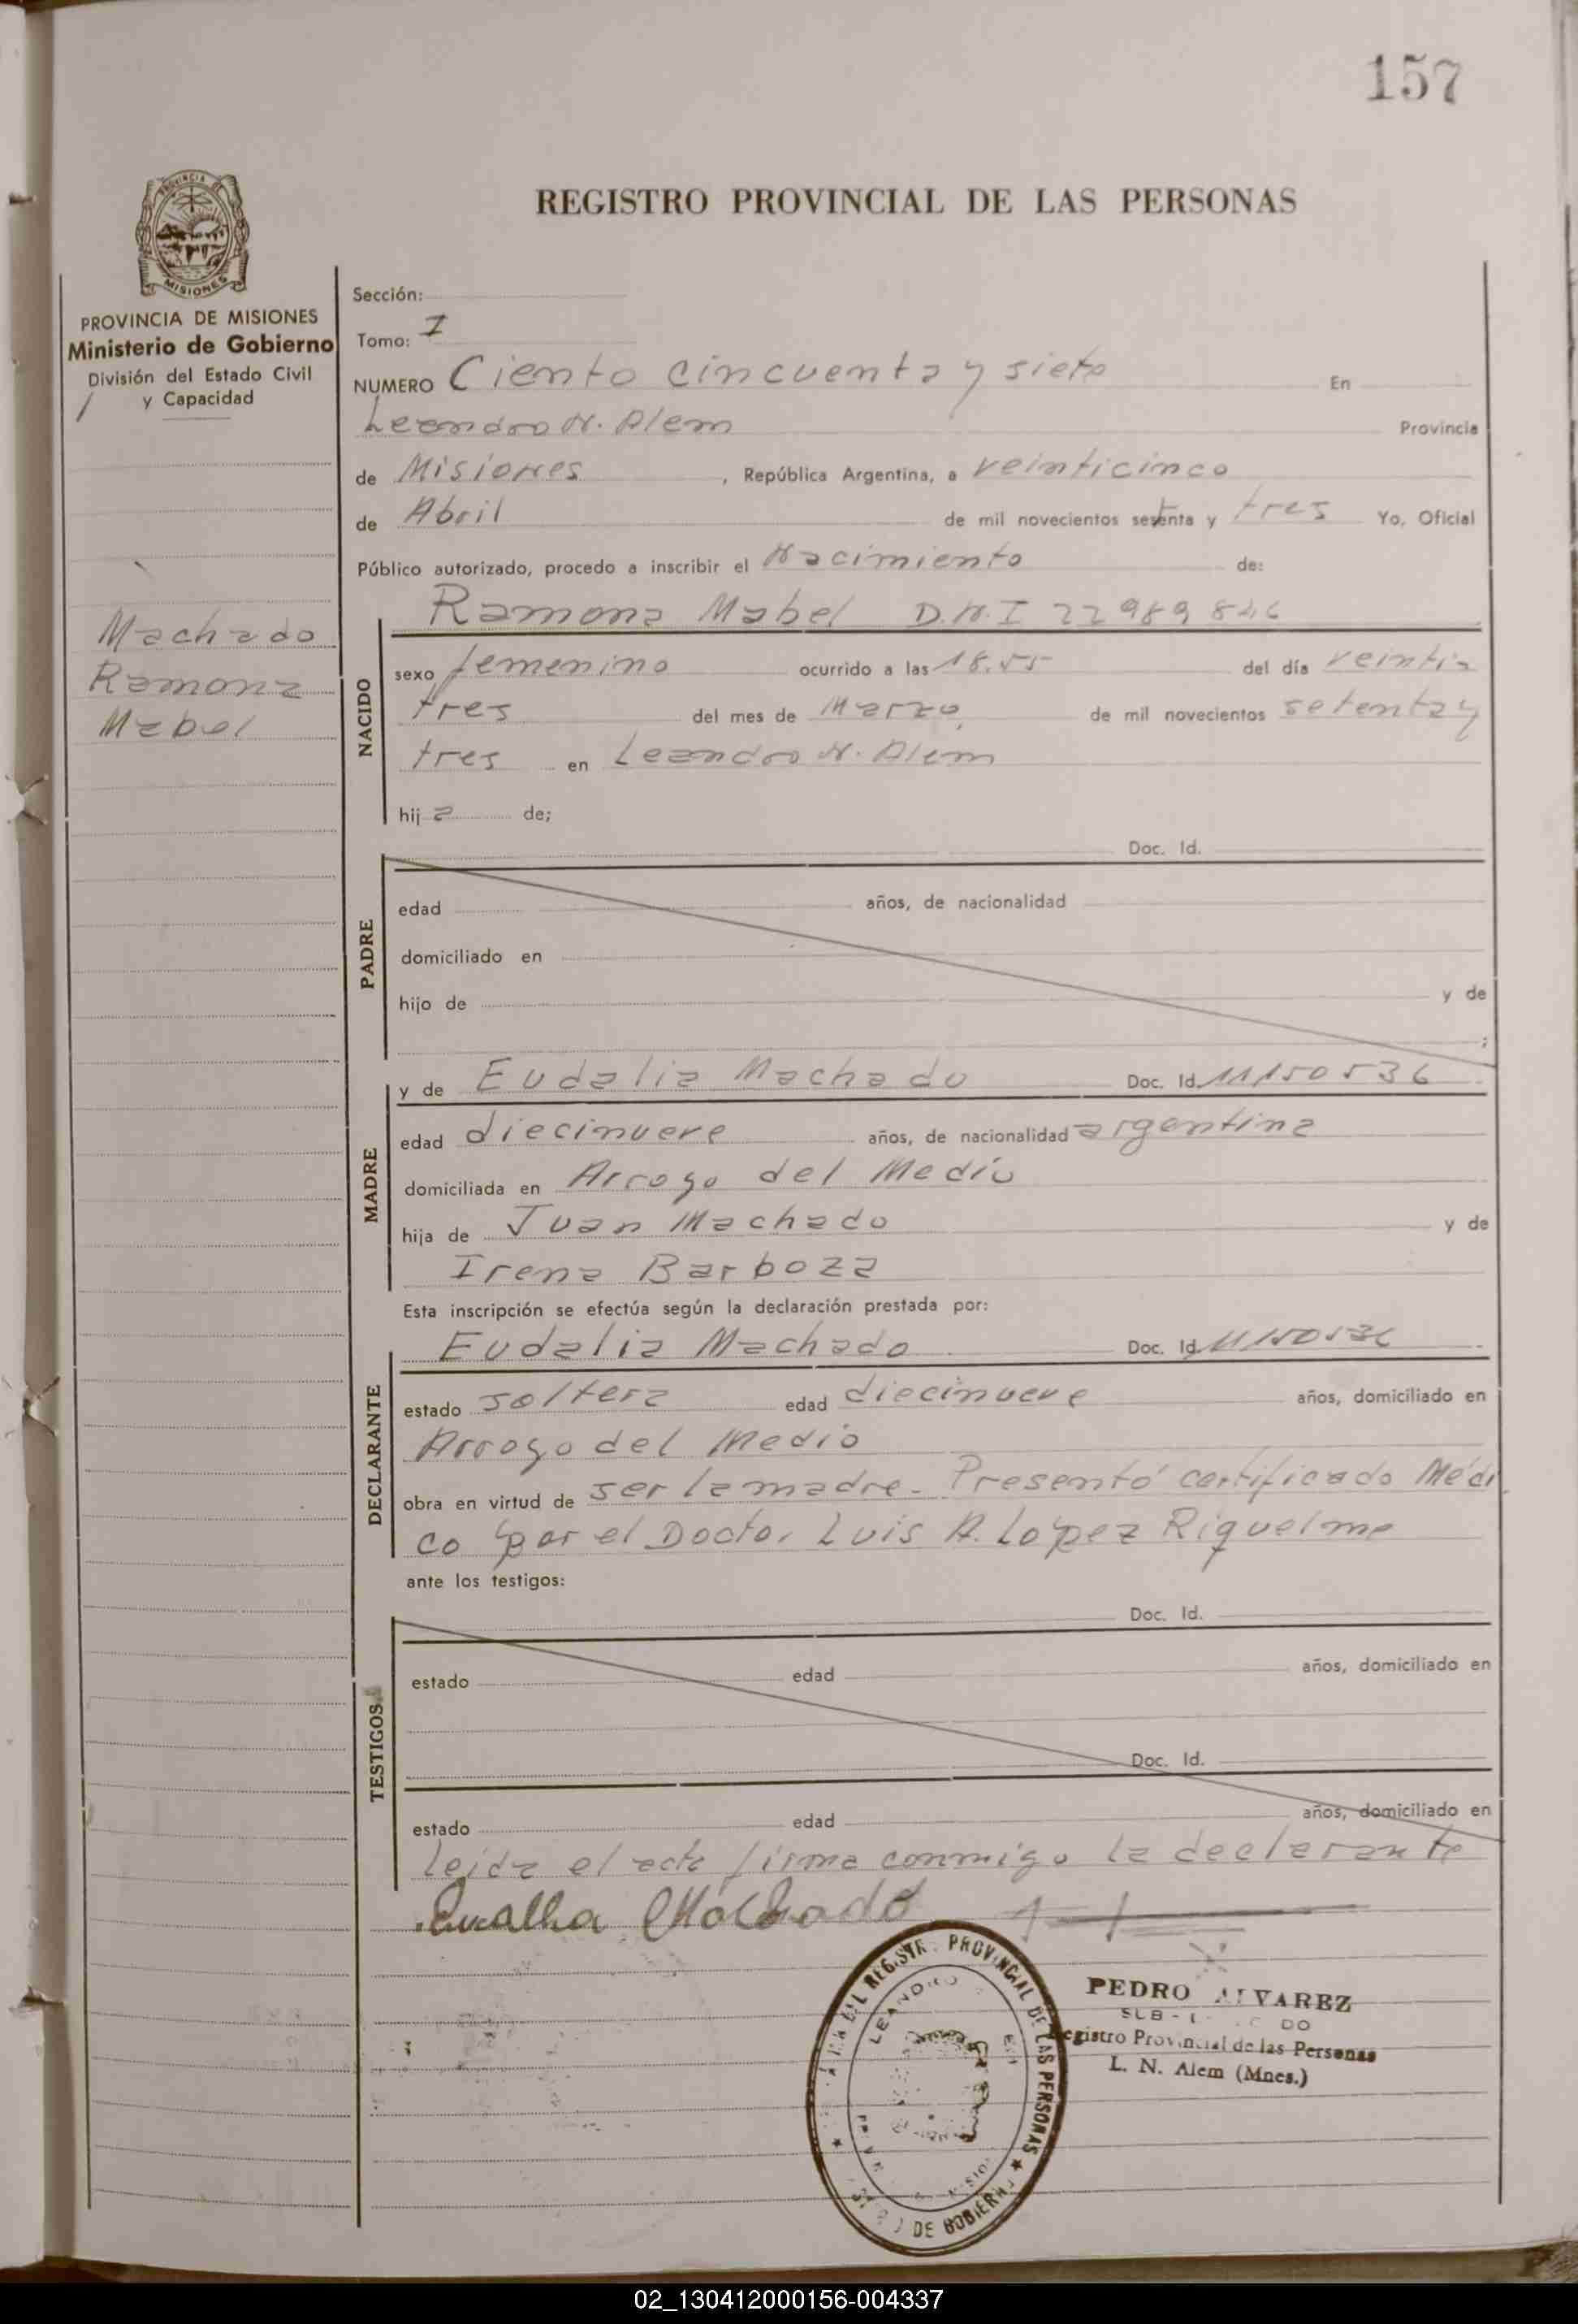 157
REGISTRO PROVINCIAL DE LAS PERSONAS
PROVINCIA DE
MISIONES
PROVINCIA DE MISIONES
Ministerio de Gobierno
División del Estado Civil
y Capacidad
Machado
Ramona
Mabel
Sección:
Tomo: I
NUMERO Ciento cincuenta y siete En
Leandro N. Alem Provincia
de Misiones, República Argentina, a veinticinco
de Abril de mil novecientos setenta y tres Yo, Oficial
Público autorizado, procedo a inscribir el Nacimiento de:
Ramona Mabel D.N.I 22989846
NACIDO
sexo femenino ocurrido a las 18.55 del día veinti
tres del mes de Marzo de mil novecientos setenta y
tres en Leandro N. Alem
hija de;
PADRE
Doc. Id.
edad años, de nacionalidad
domiciliado en
hijo de y de
;
MADRE
y de Eudalia Machado Doc. Id. 11150536
edad diecinueve años, de nacionalidad argentina
domiciliada en Arroyo del Medio
hija de Juan Machado y de
Irena Barboza
Esta inscripción se efectúa según la declaración prestada por:
DECLARANTE
Eudalia Machado Doc. Id. 11150536
estado soltera edad diecinueve años, domiciliado en
Arroyo del Medio
obra en virtud de ser la madre. Presentó certificado Médi
co por el Doctor Luis A. López Riquelme
ante los testigos:
TESTIGOS
Doc. Id.
estado edad años, domiciliado en
Doc. Id.
estado edad años, domiciliado en
Leída el acta firma conmigo la declarante
Machado
PROVINCIAL DE LAS PERSONAS
LEANDRO
DE GOBIERNO
PEDRO ALVAREZ
Registro Provincial de las Personas
L. N. Alem (Mnes.)
02_130412000156-004337